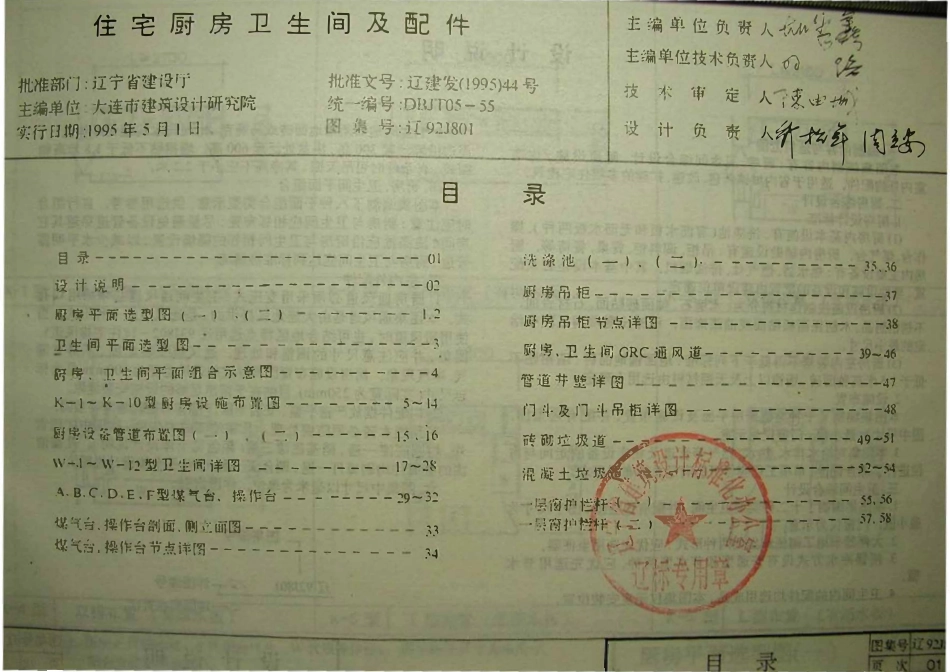 住宅厨房卫生间及配件
批准部门:辽宁省建设厅
主编单位:大连市建筑设计研究院
实行日期:1995年5月1日
批准文号:辽建发(1995)44号
统一编号:DBJT05-55
图集号:辽92J801
主编单位负责人
主编单位技术负责人
技术审定人
设计负责人
目 录
目录 01
设计说明 02
厨房平面选型图(一)、(二) 1.2
卫生间平面选型图 3
厨房、卫生间平面组合示意图 4
K-1~K-10型厨房设施布置图 5~14
厨房设备管道布置图(一)、(二) 15.16
W-1~W-12型卫生间详图 17~28
A.B.C.D.E.F型煤气台、操作台 29~32
煤气台.操作台剖面.侧立面图 33
煤气台.操作台节点详图 34
洗涤池(一)、(二) 35.36
厨房吊柜 37
厨房吊柜节点详图 38
厨房.卫生间GRC通风道 39~46
管道井壁详图 47
门斗及门斗吊柜详图 48
砖砌垃圾道 49~51
混凝土垃圾道 52~54
一层窗护栏杆(一) 55.56
一层窗护栏杆(二) 57.58
辽宁省建筑设计标准化办公室
辽标专用章
目 录
图集号 辽92J
页次 01